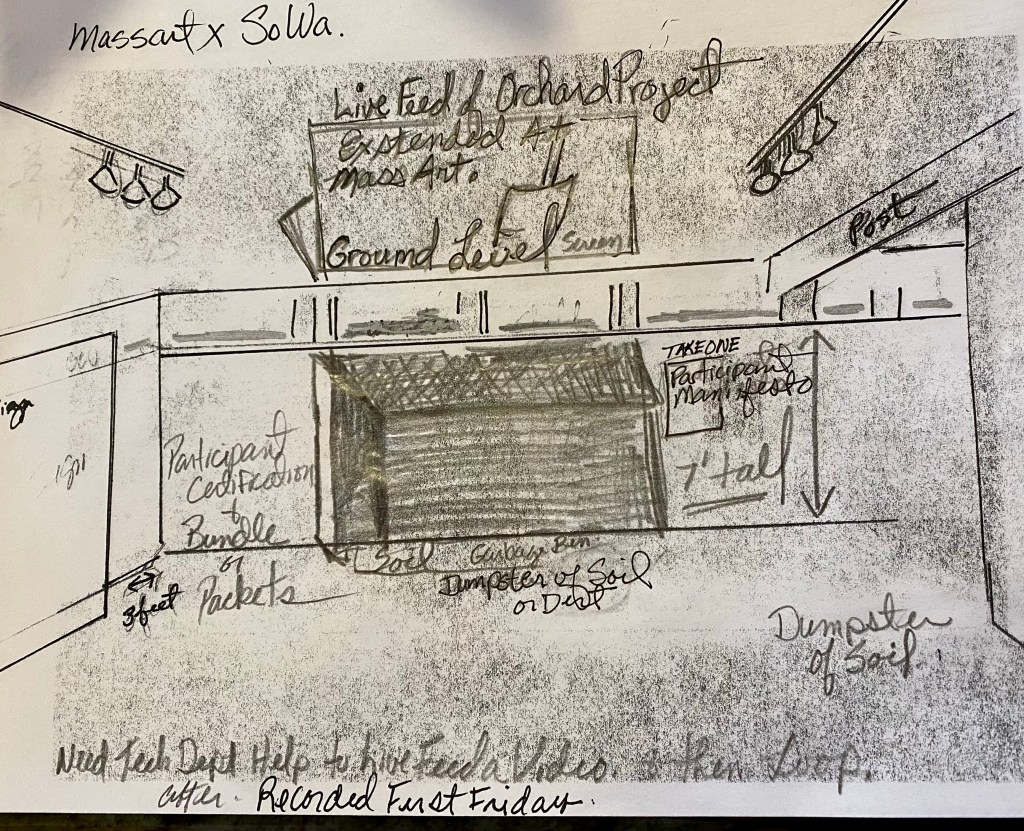 Massart x SoWa.
Live Feed of Orchard Project
Exstended At
Mass Art.
Ground Level
Screen
Post
TAKE ONE
Participant
Manifesto
7' tall
Participant
Cedification
+
Bundle
of
Packets
3 feet
Soil
Garbage Ben
Dumpster of Soil
or Dert
Dumpster
of Soil.
Need Tech Dept Help to Live Feed a Video. & then Loop.
after. Recorded First Friday.